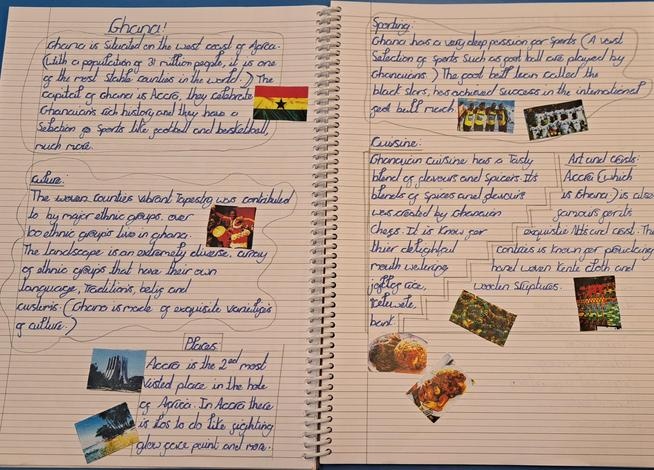 Ghana!
Ghana is situated on the west coast of Africa.
(With a population of 31 million people, it is one
of the most stable counties in the world.) The
capital of Ghana is Accra, they celebrate
Ghanaians rich history and they have a
selection of sports like football and basketball,
much more.
Culture:
The woven counties vibrant Tapestry was contributed
to by major ethnic groups. over
100 ethnic groups live in ghana.
The landscape is an extremely diverse, array
of ethnic groups that have their own
language, Traditions, belifs and
customs. (Ghana is made of exquisite varieties
of culture.)
Places
Accra is the 2nd most
visted place in the hole
of Africa. In Accra there
is lots to do like sighting
glow face paint and more.
Sporting:
Ghana has a very deep passion for sports (A vast
selection of sports such as foot ball are played by
ghanaians) The foot ball team called the
black stars, has achieved success in the international
foot ball much
Cuisine:
Ghanaian cuisine has a Tasty
blend of flavours and spices. Its
blends of spices and flavours
was created by Ghanaian
Chefs. It is know for
thier delightful
mouth watering
jollof rice,
Kelewele,
Art and
Accra (which
is Ghana) is also
famous for its
exquisite Arts and The
is known for producing
hand woven Kente cloth and
wooden